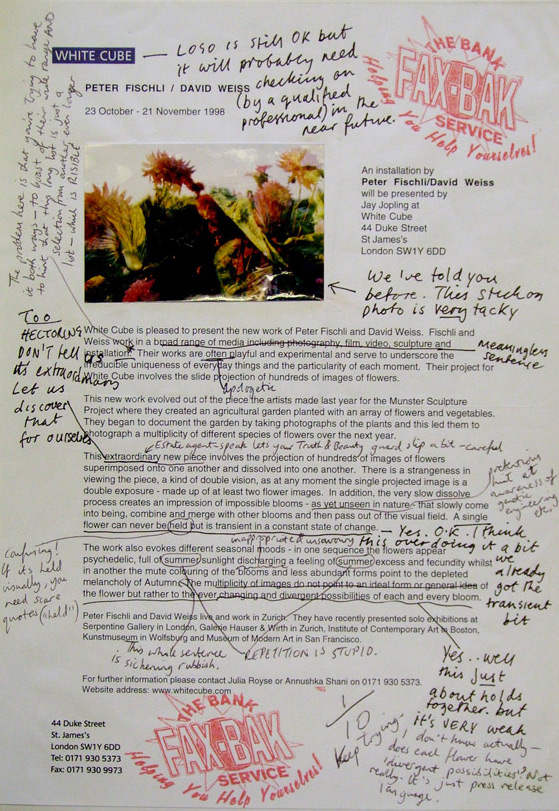 WHITE CUBE
LOGO IS STILL OK but
it will probably need
checking on
(by a qualified
professional) in the
near future.
THE BANK
FAX-BAK
SERVICE
Helping You Help Yourselves!
PETER FISCHLI / DAVID WEISS
23 October - 21 November 1998
The problem here is that you're trying to have
it both ways - to boast of their wide range AND
to hint that this long list is just a
selection from another even longer
list - which is RISIBLE
An installation by
Peter Fischli/David Weiss
will be presented by
Jay Jopling at
White Cube
44 Duke Street
St James's
London SW1Y 6DD
We've told you
before. This stuck on
photo is very tacky
Too
HECTORING
DON'T tell us
its extraordinary
Let us
discover
that
for ourselves
White Cube is pleased to present the new work of Peter Fischli and David Weiss. Fischli and
Weiss work in a broad range of media including photography, film, video, sculpture and
installation. Their works are often playful and experimental and serve to underscore the
irreducible uniqueness of everyday things and the particularity of each moment. Their project for
White Cube involves the slide projection of hundreds of images of flowers.
meaningless
sentence
Apologetic
This new work evolved out of the piece the artists made last year for the Munster Sculpture
Project where they created an agricultural garden planted with an array of flowers and vegetables.
They began to document the garden by taking photographs of the plants and this led them to
photograph a multiplicity of different species of flowers over the next year.
Estate agent-speak lets your Truth & Beauty guard slip a bit - careful
This extraordinary new piece involves the projection of hundreds of images of flowers
superimposed onto one another and dissolved into one another. There is a strangeness in
viewing the piece, a kind of double vision, as at any moment the single projected image is a
double exposure - made up of at least two flower images. In addition, the very slow dissolve
process creates an impression of impossible blooms - as yet unseen in nature - that slowly come
into being, combine and merge with other blooms and then pass out of the visual field. A single
flower can never be held but is transient in a constant state of change.
pretentious
hint at
awareness of
genetic
engineering
etc
Yes. O.K. I think
this overdoing it a bit
we
already
got the
transient
bit
confusing!
If its held
visually, you
need scare
quotes ("held")
inappropriate unsavoury
The work also evokes different seasonal moods - in one sequence the flowers appear
psychedelic, full of summer sunlight discharging a feeling of summer excess and fecundity whilst
in another the mute colouring of the blooms and less abundant forms point to the depleted
melancholy of Autumn. The multiplicity of images do not point to an ideal form or general idea of
the flower but rather to the ever changing and divergent possibilities of each and every bloom.
Peter Fischli and David Weiss live and work in Zurich. They have recently presented solo exhibitions at
Serpentine Gallery in London, Galerie Hauser & Wirth in Zurich, Institute of Contemporary Art in Boston,
Kunstmuseum in Wolfsburg and Museum of Modern Art in San Francisco.
This whole sentence
is sickening rubbish.
REPETITION IS STUPID.
For further information please contact Julia Royse or Annushka Shani on 0171 930 5373.
Website address: www.whitecube.com
Yes.. well
this just
about holds
together. but
it's VERY weak
I don't know actually -
does each flower have
'divergent possibilities'? Not
really. It's just press release
language.
1/10
Keep trying
44 Duke Street
St. James's
London SW1Y 6DD
Tel: 0171 930 5373
Fax: 0171 930 9973
THE BANK
FAX-BAK
SERVICE
Helping You Help Yourselves!